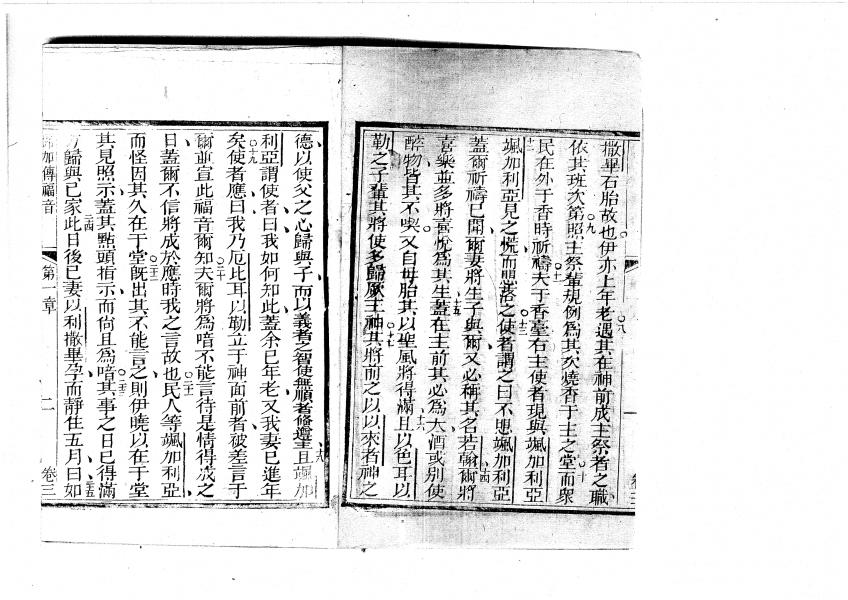 撒畢石胎故也伊亦上年老遇其在神前成主祭者之職 ○八
依其班次第照主祭輩規例為其次燒香于主之堂而眾 ○九 ○十
民在外于香時祈禱夫于香臺右主使者現與颯加利亞 十一
颯加利亞見之慌而 之使者謂之曰不思颯加利亞 ○十三
蓋爾祈禱已聞爾妻將生子與爾又必稱其名若翰爾將 十四
喜樂並多將喜悅為其生蓋在主前其必為大酒或別使 十五
醉物皆其不喫又自母胎其以聖風將得滿且以色耳以 十六
勒之子輩其將使多歸厥主神其將前之以以來者神之 ○十七
德以使父之心歸與子而以義者之智使無順者修 主且颯加 十八
利亞謂使者曰我如何知此蓋余已年老又我妻已進年
矣使者應曰我乃厄此耳以勒立于神面前者被差言于 ○十九
爾並宣此福音爾知夫爾將為啞不能言待是情得成之 ○二十
日蓋爾不信將成於應時我之言故也民人等颯加利亞 ○二十一
而怪因其久在于堂既出其不能言之則伊曉以在于堂 ○二十二
其見照示蓋其點頭指示而尚且為啞其事之日已得滿 ○二十三
歸與己家此日後己妻以利撒畢孕而靜住五月曰如 二十四 二十五
加傳福音 第一章 二 卷三